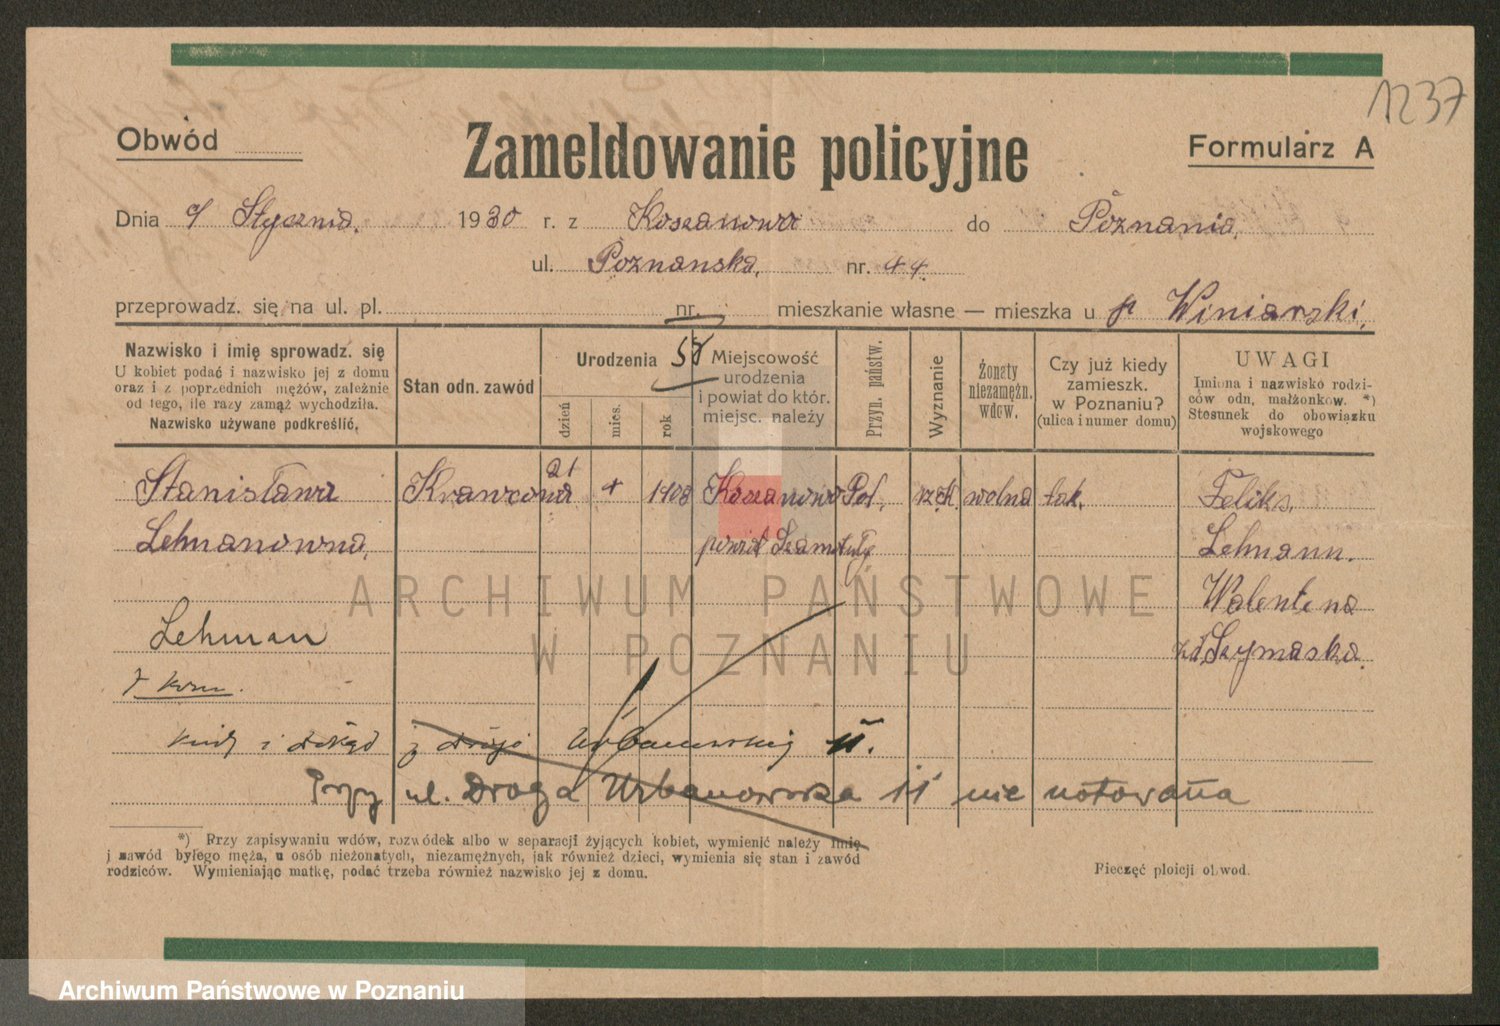 1237
Obwód
Zameldowanie policyjne
Formularz A
Dnia 9 Stycznia. 1930 r. z Koszanowa do Poznania.
ul. Poznanska. nr. 44.
przeprowadz. się na ul. pl. nr. mieszkanie własne — mieszka u p Winiarski.
58
Nazwisko i imię sprowadz. się
U kobiet podać i nazwisko jej z domu
oraz i z poprzednich mężów, zależnie
od tego, ile razy zamąż wychodziła.
Nazwisko używane podkreślić.
Stan odn. zawód
Urodzenia
dzień
mies.
rok
Miejscowość
urodzenia
i powiat do któr.
miejsc. należy
Przyn. państw.
Wyznanie
Żonaty
niezamężn.
wdow.
Czy już kiedy
zamieszk.
w Poznaniu?
(ulica i numer domu)
UWAGI
Imiona i nazwisko rodzi-
ców odn, małżonkow. *)
Stosunek do obowiązku
wojskowego
Stanisława Krawcowa 21 4 1908 Koszanowo Pol. rzek. wolna tak. Feliks.
Lehmanowna. powiat Szamotuły Lehmann.
Walentena
Lehman zd. Szymaska.
kiedy i dokąd z Drogi Urbanowskiej 11.
Przy ul. Droga Urbanowska 11 nie notowana
*) Przy zapisywaniu wdów, rozwódek albo w separacji żyjących kobiet, wymienić należy imię
j zawód byłego męża, u osób nieżonatych, niezamężnych, jak również dzieci, wymienia się stan i zawód
rodziców. Wymieniając matkę, podać trzeba również nazwisko jej z domu.
Pieczęć ploicji obwod.
ARCHIWUM PAŃSTWOWE
W POZNANIU
Archiwum Państwowe w Poznaniu